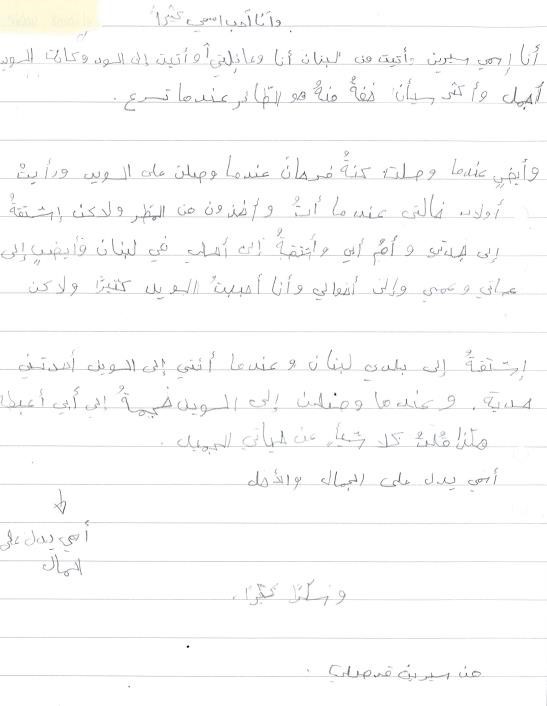 وأنا أحب اسمي كثيراً.
أنا إسمي سيرين وأتيت من لبنان أنا وعائلتي أو أتيت إلى السويد وكانت السويد
أجمل وأكثر سيأن خفةُ منهُ هو الطائر عندما تسرع.
وأيضٍ عندما وصلته كنةُ فرحانً عندما وصلن على السويد ورأيت
أولاد خالتي عندما أتُ وإخذون من المطر ولاكن إشتقةُ
إلى جدتي و أمُ أبي وأشتقةُ إلى أهلي في لبنان وأيضٍ إلى
عماتي وعمي وإلى أخوالي وأنا أحببتُ السويد كثيرًا ولاكن
إشتقةُ إلى بلدي لبنان وعندما أتني إلى السويد أهدتني
هدية. وعندما وصلن إلى السويد ضجمةُ إلى أبي أعبطا
هكذا قلتُ كلا شيأٍ عن حياتي الجميل.
أسمي يدل على الجمال والأمل
أسمي يدل على
الجمال
وشكرًا كثيرًا.
من سيرين